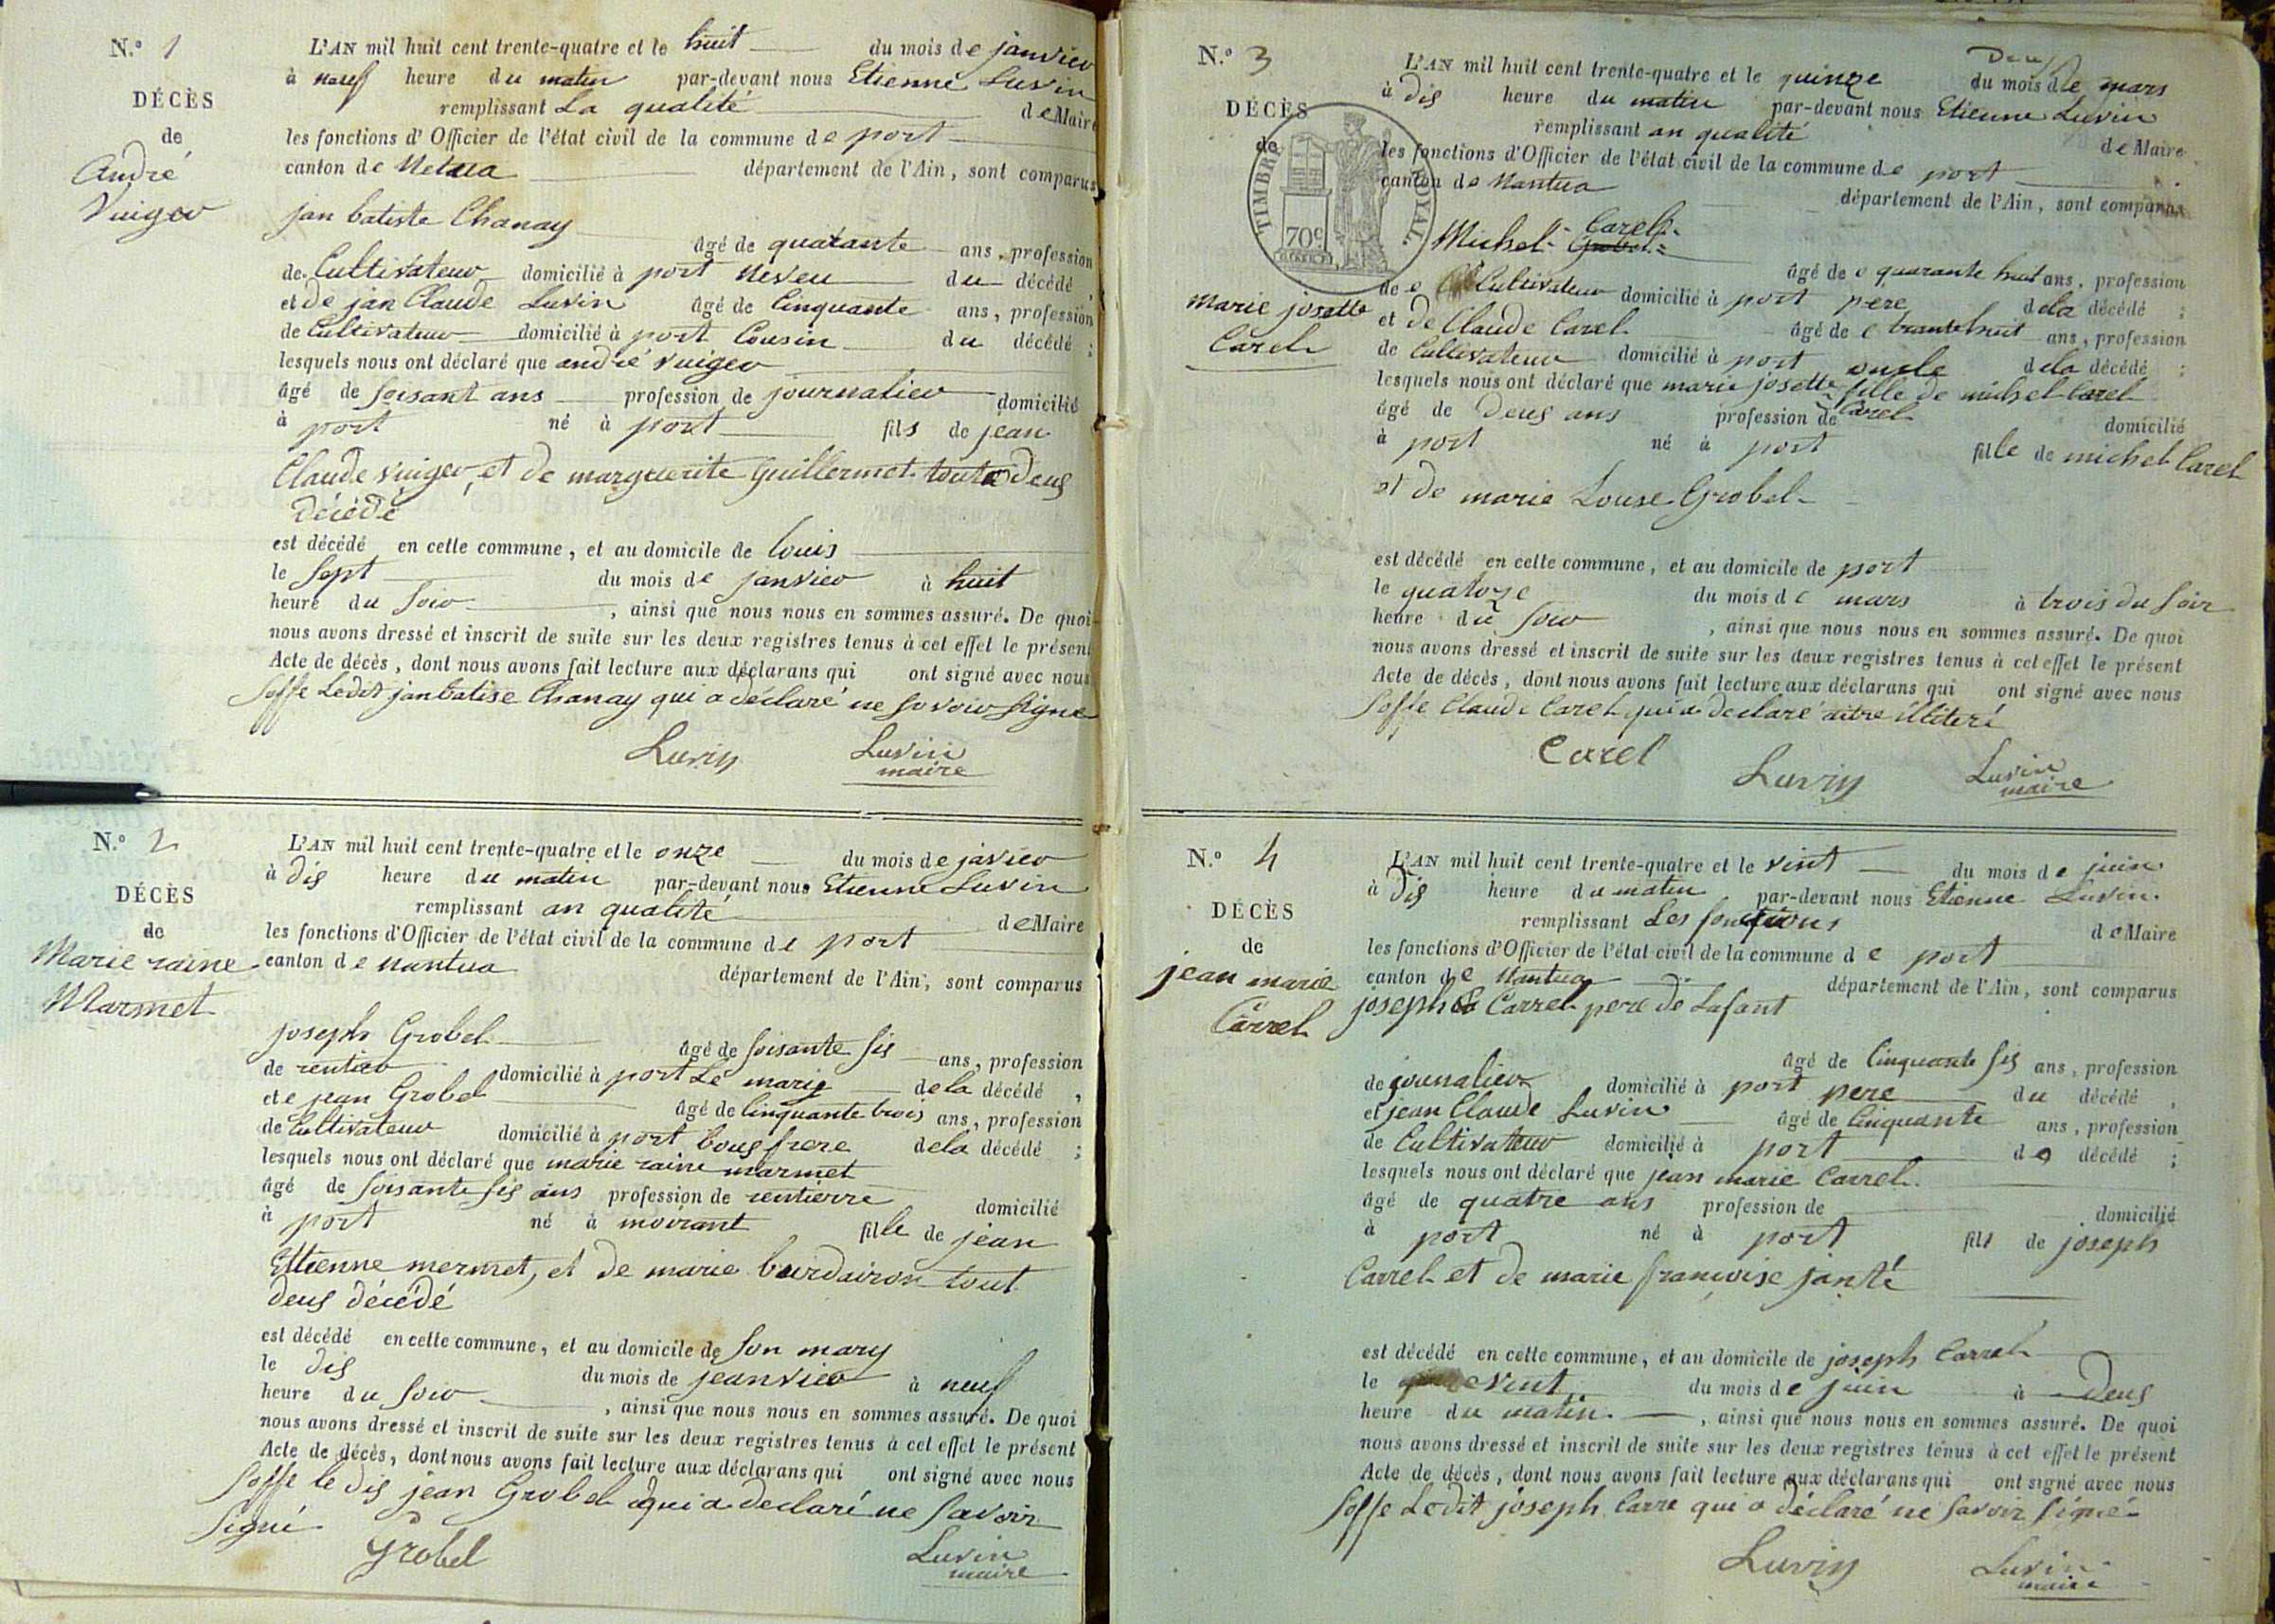 N.º 1
DÉCÈS
de
André
Vuiger
L'AN mil huit cent trente-quatre et le huit du mois de janvier
à neuf heure du matin par-devant nous Etienne Luvin
remplissant La qualité de Maire
les fonctions d'Officier de l'état civil de la commune de port
canton de Netua département de l'Ain, sont comparus
jan batiste Chanay âgé de quarante ans, profession
de Cultivateur domicilié à port Neveu du décédé,
et de jan Claude Luvin âgé de Cinquante ans, profession
de Cultivateur domicilié à port Cousin du décédé;
lesquels nous ont déclaré que andré Vuiger
âgé de soisant ans profession de journalier domicilié
à port né à port fils de jean
Claude Vuiger, et de marguerite Guillermet tout deus
Décédé
est décédé en cette commune, et au domicile de louis
le Sept du mois de janvier à huit
heure du Soir, ainsi que nous nous en sommes assuré. De quoi
nous avons dressé et inscrit de suite sur les deux registres tenus à cet effet le présent
Acte de décès, dont nous avons fait lecture aux déclarans qui ont signé avec nous
soffe Ledit jan batise Chanay qui a déclaré ne savoir signe
Luvin Luvin
maire
N.º 2
DÉCÈS
de
Marie raine
Marmet
L'AN mil huit cent trente-quatre et le onze du mois de javier
à dis heure du matin par-devant nous Etienne Luvin
remplissant an qualité de Maire
les fonctions d'Officier de l'état civil de la commune de port
canton de nantua département de l'Ain, sont comparus
joseph Grobel âgé de soisante sis ans, profession
de rentier domicilié à port Le marij de la décédé,
et e jean Grobel âgé de Cinquante trois ans, profession
de Cultivateur domicilié à port bous frere de la décédé;
lesquels nous ont déclaré que marie raine marmet
âgé de soisante sis ans profession de rentierre domicilié
à port né à moirant fille de jean
Ettienne mermet, et de marie burdairon tout
deus décédé
est décédé en cette commune, et au domicile de son mary
le dis du mois de jeanvier à neuf
heure du Soir, ainsi que nous nous en sommes assuré. De quoi
nous avons dressé et inscrit de suite sur les deux registres tenus à cet effet le présent
Acte de décès, dont nous avons fait lecture aux déclarans qui ont signé avec nous
Soffe le dis jean Grobel qui a declaré ne Savoir
signé
Grobel Luvin
maire
N.º 3
DÉCÈS
de
marie josette
Carel
TIMBRE ROYAL.
70c
L'AN mil huit cent trente-quatre et le quinze du mois de mars
à dis heure du matin par-devant nous Etienne Luvin
remplissant an qualité de Maire
les fonctions d'Officier de l'état civil de la commune de port
canton de Nantua département de l'Ain, sont comparus
Carel
Michel Grobel âgé de quarante huit ans, profession
de Cultivateur domicilié à port pere de la décédé;
et de Claude Carel âgé de trante huit ans, profession
de Cultivateur domicilié à port oncle de la décédé;
lesquels nous ont déclaré que marie josette fille de michel Carel
âgé de deus ans profession de Carel domicilié
à port né à port fille de michel Carel
et de marie Louse Grobel
est décédé en cette commune, et au domicile de port
le quatoze du mois de mars à trois du soir
heure du soir, ainsi que nous nous en sommes assuré. De quoi
nous avons dressé et inscrit de suite sur les deux registres tenus à cet effet le présent
Acte de décès, dont nous avons fait lecture aux déclarans qui ont signé avec nous
soffe Claude Carel qui a declaré aitre illiteré
Carel Luvin Luvin
maire
N.º 4
DÉCÈS
de
jean marie
Carrel
L'AN mil huit cent trente-quatre et le vint du mois de juin
à dis heure du matin par-devant nous Etienne Luvin.
remplissant Les fonctions de Maire
les fonctions d'Officier de l'état civil de la commune de port
canton de Nantua département de l'Ain, sont comparus
joseph Carrel pere de Lafant
âgé de Cinquante sis ans, profession
de jounalier domicilié à port pere du décédé,
et jean Claude Luvin âgé de Cinquante ans, profession
de Cultivateur domicilié à port de décédé;
lesquels nous ont déclaré que jean marie Carrel
âgé de quatre ans profession de domicilié
à port né à port fils de joseph
Carrel et de marie francoise janté
est décédé en cette commune, et au domicile de joseph Carrel
le vint du mois de juin à Deus
heure du matin, ainsi que nous nous en sommes assuré. De quoi
nous avons dressé et inscrit de suite sur les deux registres tenus à cet effet le présent
Acte de décès, dont nous avons fait lecture aux déclarans qui ont signé avec nous
soffe Ledit joseph Carre qui a déclaré ne savoir signé
Luvin Luvin
maire